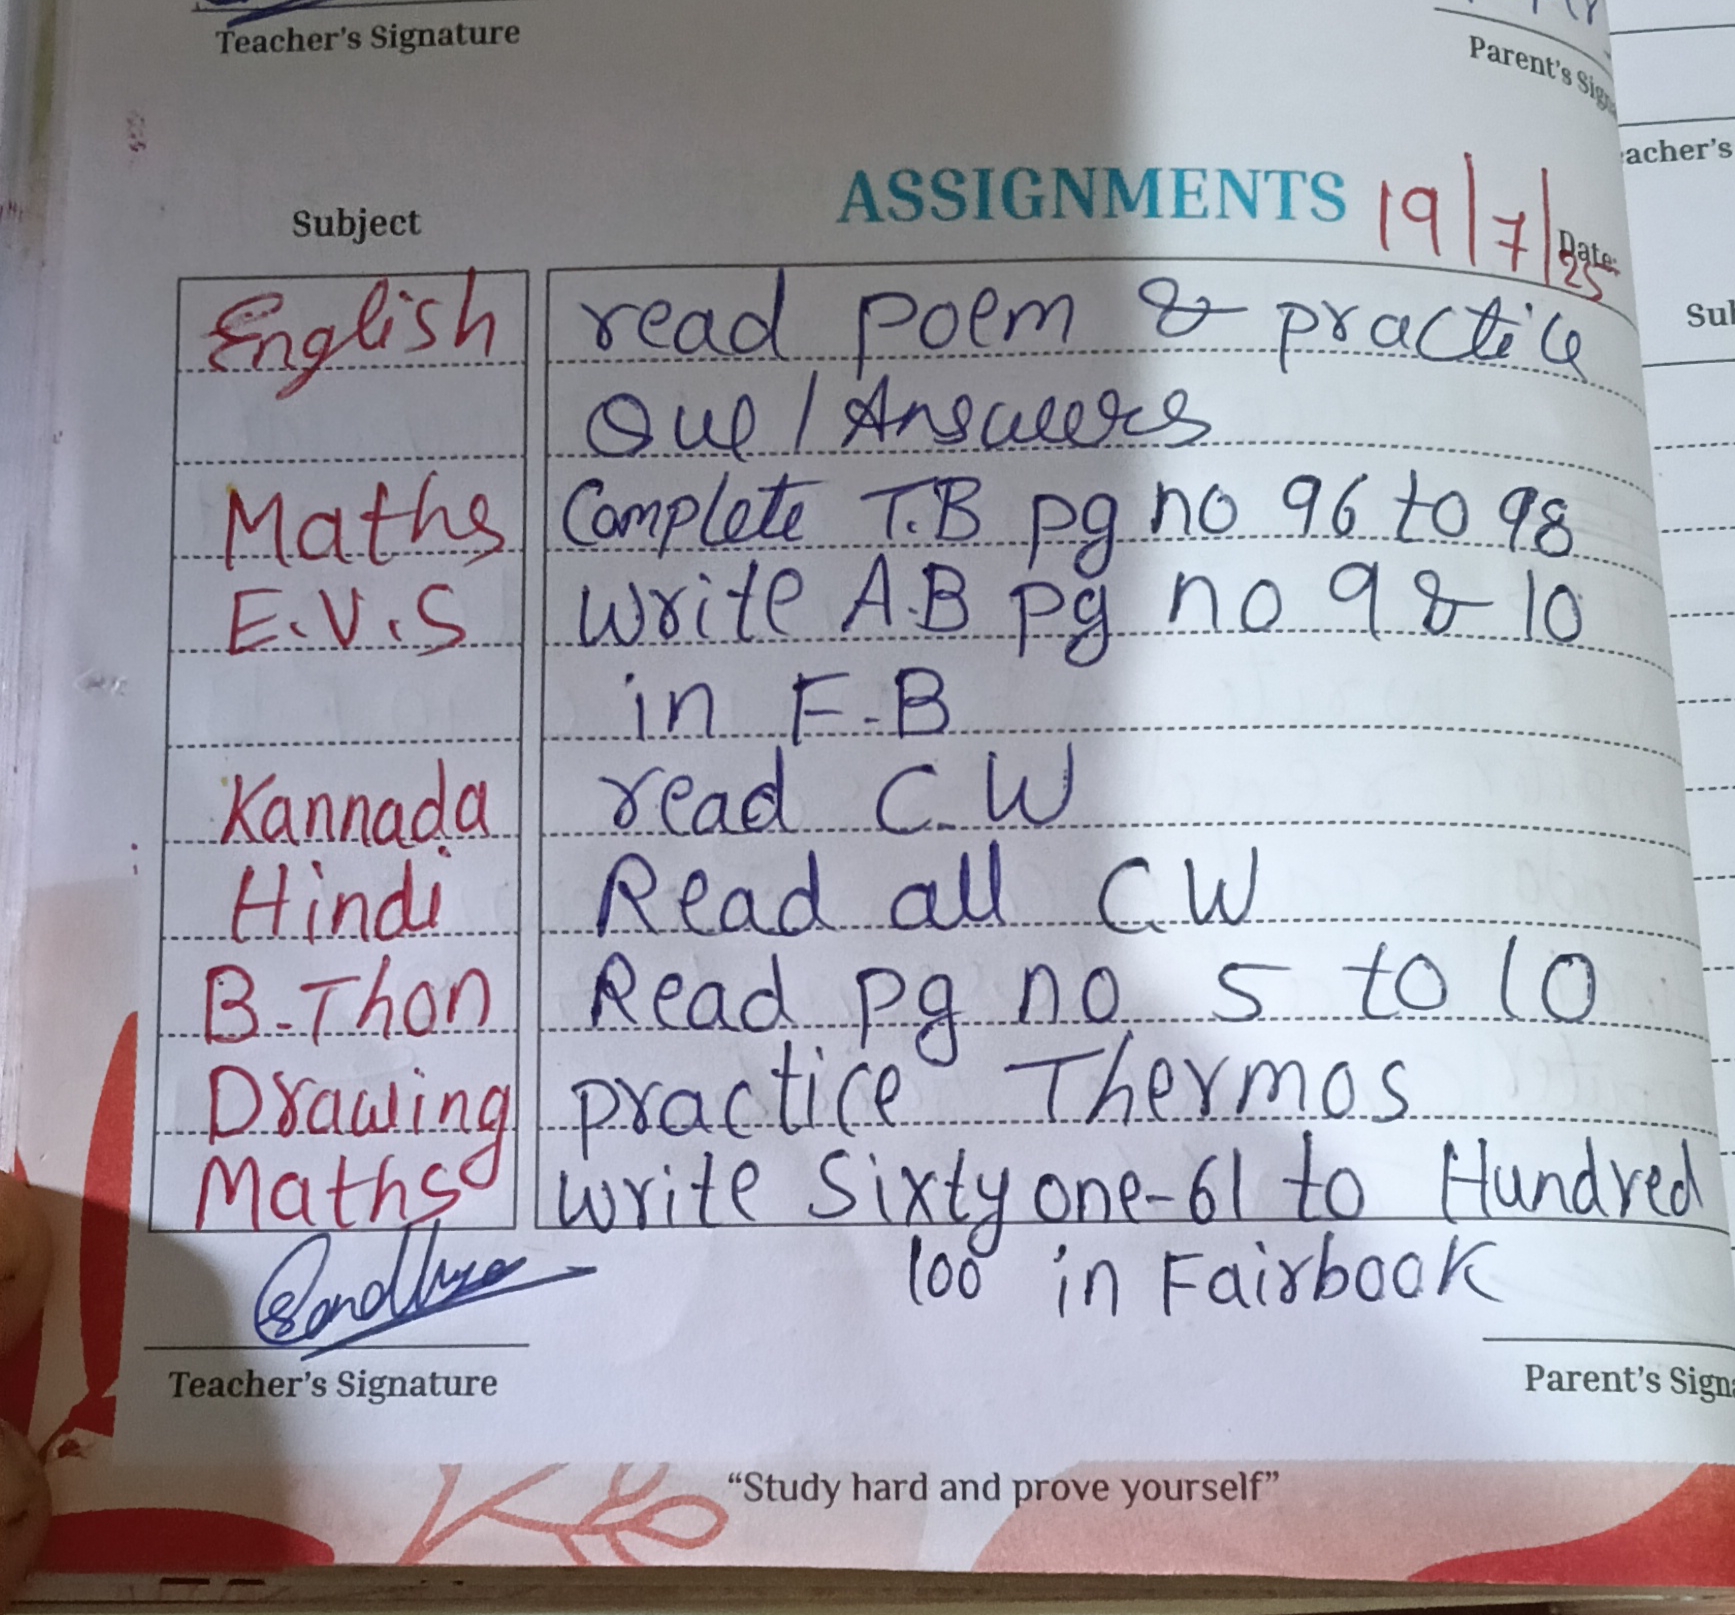 Teacher's Signature
Parent's Sign
acher's
Subject
ASSIGNMENTS 19/7/25 Date:
English read poem & practice
Que/Answers
Maths Complete T.B pg no 96 to 98
E.V.S Write A.B pg no 9 & 10
in F.B
Kannada read C.W
Hindi Read all C.W
B-Thon Read pg no 5 to 10
Drawing practice Thermos
Maths write Sixty one-61 to Hundred
100 in Fairbook
Sandhya
Teacher's Signature
Parent's Signa
"Study hard and prove yourself"